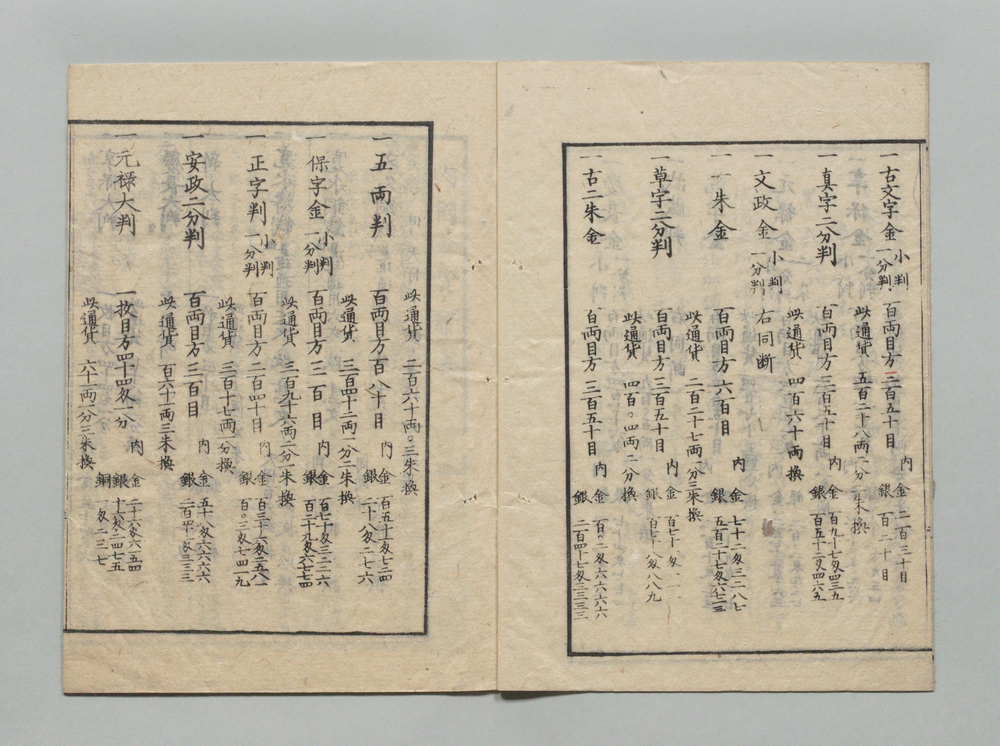 一古文字金 小判 一分判 百両目方二百五十目 内 金 二百三十目 銀 百二十目
此通貨 五百二十八両二分二朱換
一真字二分判 百両目方三百五十目 内 金 百九十七匁四三九 銀 百五十二匁四六五
此通貨 四百六十両換
一文政金 小判 一分判 右同断
一一朱金 百両目方六百目 内 金 七十二匁三二八七 銀 五百二十七匁六七一三
此通貨 二百二十七両二分三朱換
一草字二分判 百両目方三百五十目 内 金 百七十一匁一一 銀 百七十八匁八八九
此通貨 四百〇四両二分換
一古二朱金 百両目方三百五十目 内 金 百〇二匁六六六六 銀 二百四十七匁三三三三
此通貨 二百六十両〇三朱換
一五両判 百両目方百八十目 内 金 百五十一匁七二四 銀 二十八匁二七六
此通貨 三百四十二両一分二朱換
一保字金 小判 一分判 百両目方三百目 内 金 百七十匁三二二六 銀 百二十九匁六七七四
此通貨 三百九十六両二分一朱換
一正字判 小判 一分判 百両目方二百四十目 内 金 百三十六匁二五八一 銀 百〇三匁七四一九
此通貨 三百十七両一分換
一安政二分判 百両目方三百目 内 金 五十八匁六六六六 銀 二百四十一匁三三三
此通貨 百六十両三朱換
一元禄大判 一枚目方四十四匁一分 内 金 二十六匁六五四 銀 十六匁二四七五 銅 一匁一二三七
此通貨 六十両一分三朱換